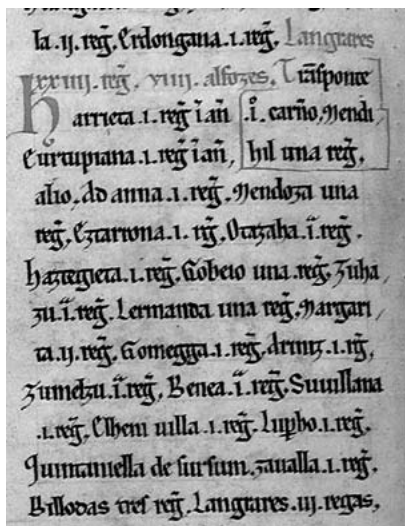 la .ij. reg̃. Erdongana .i. reg̃. Langrares
xxiiij. reg̃. viiij alfozes, Trãsponte
Harrieta .i. reg̃ ĩ añ .i. carño, Mendi
Eurtupiana .i. reg̃ ĩ añ, hil una reg̃,
alio, Ad anna .i. reg̃. Mendoza una
reg̃. Eztarrona .i. rg̃. Otazaha .ĩ. reg̃.
haztegieta .i. reg̃. Gobeio una reg̃. Zuha
zu .ĩ. reg̃. Lermanda una reg̃. Margari
ta .ij. reg̃. Gomegga .i. reg̃. Arinz .i. rg̃,
Zumelzu .ĩ. reg̃, Benea .ĩ. reg̃. Suvillana
.i. reg̃, Elhem uilla .i. reg̃. Lupho .i. reg̃.
Quintaniella de sursum, zaualla .i. reg̃.
Billodas tres reg̃. Langrares .iij. regas,